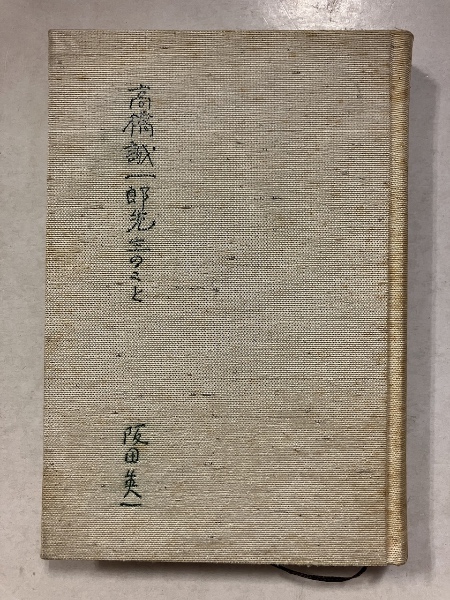 高橋誠一郎先生のこと
阪田英一